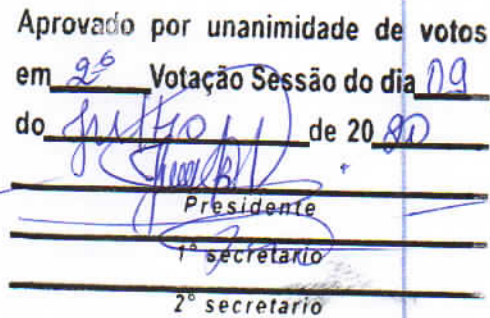 Aprovado por unanimidade de votos
em 2º Votação Sessão do dia 09
do de 20 20
Presidente
1º secretario
2º secretario